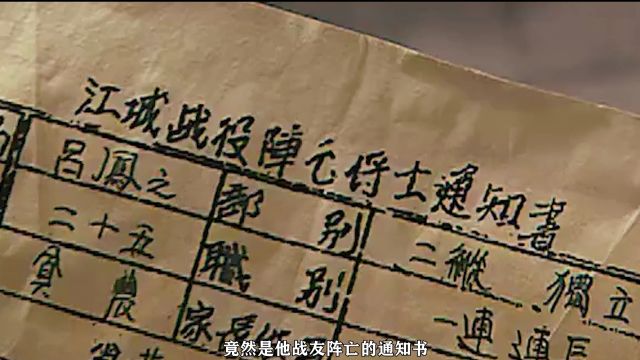 江城战役陣亡将士通知書
呂鳳之 部别 二縱 獨立
二十五 職别 一連 連長
貧農 家長
竟然是他战友阵亡的通知书